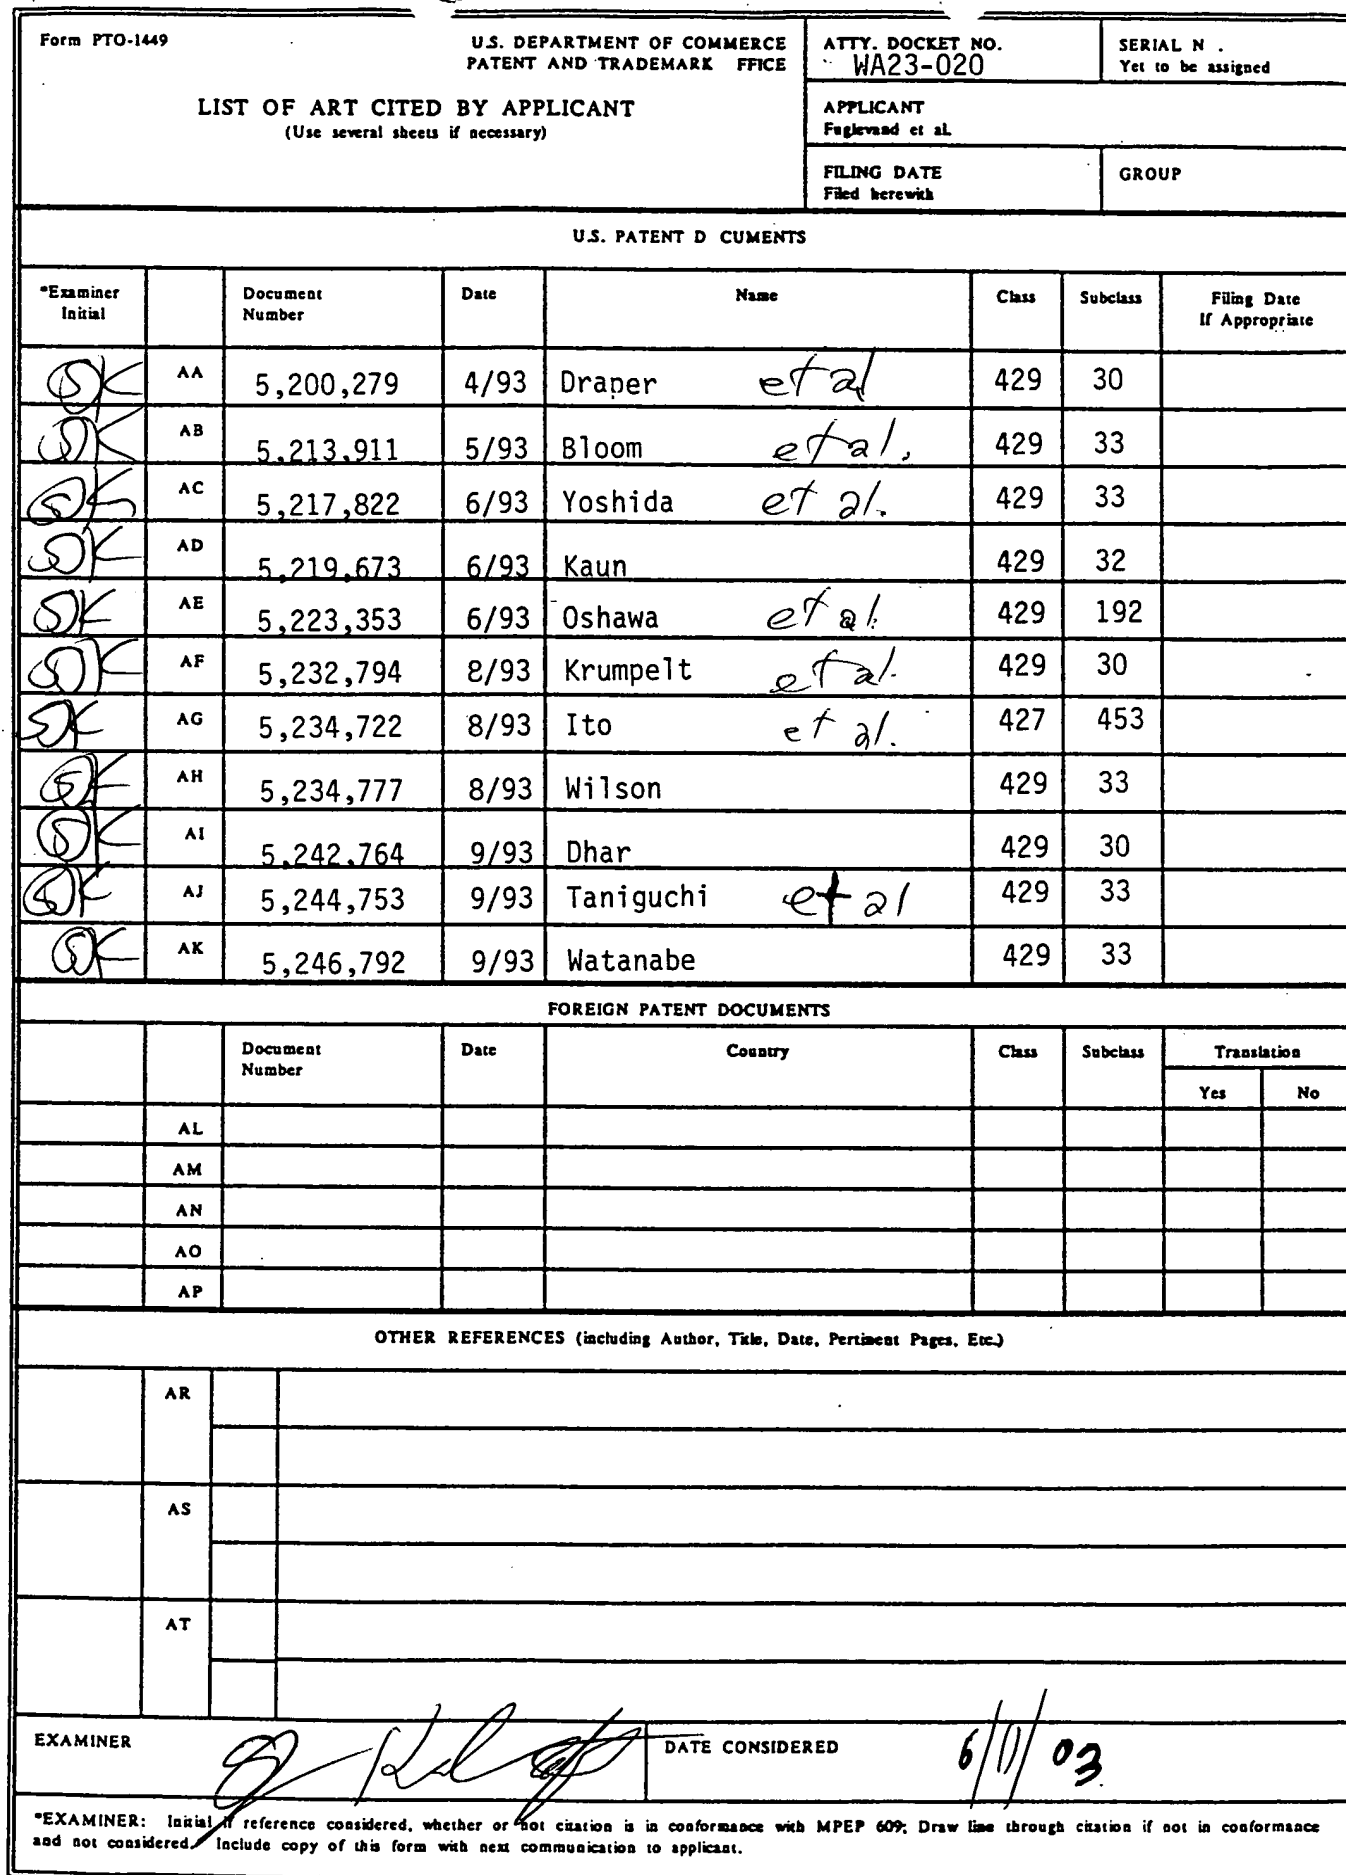 Form PTO-1449
U.S. DEPARTMENT OF COMMERCE
PATENT AND TRADEMARK FFICE
LIST OF ART CITED BY APPLICANT
(Use several sheets if necessary)
ATTY. DOCKET NO.
WA23-020
SERIAL N .
Yet to be assigned
APPLICANT
Fuglevand et al.
FILING DATE
Filed herewith
GROUP
U.S. PATENT D CUMENTS
*Examiner Initial Document Number Date Name Class Subclass Filing Date If Appropriate
SK AA 5,200,279 4/93 Draper et al 429 30
SK AB 5,213,911 5/93 Bloom et al. 429 33
SK AC 5,217,822 6/93 Yoshida et al. 429 33
SK AD 5,219,673 6/93 Kaun 429 32
SK AE 5,223,353 6/93 Oshawa et al. 429 192
SK AF 5,232,794 8/93 Krumpelt et al. 429 30
SK AG 5,234,722 8/93 Ito et al. 427 453
SK AH 5,234,777 8/93 Wilson 429 33
SK AI 5,242,764 9/93 Dhar 429 30
SK AJ 5,244,753 9/93 Taniguchi et al 429 33
SK AK 5,246,792 9/93 Watanabe 429 33
FOREIGN PATENT DOCUMENTS
Document Number Date Country Class Subclass Translation
Yes No
AL
AM
AN
AO
AP
OTHER REFERENCES (including Author, Title, Date, Pertinent Pages, Etc.)
AR
AS
AT
EXAMINER
DATE CONSIDERED 6/11/03
*EXAMINER: Initial if reference considered, whether or not citation is in conformance with MPEP 609; Draw line through citation if not in conformance
and not considered. Include copy of this form with next communication to applicant.